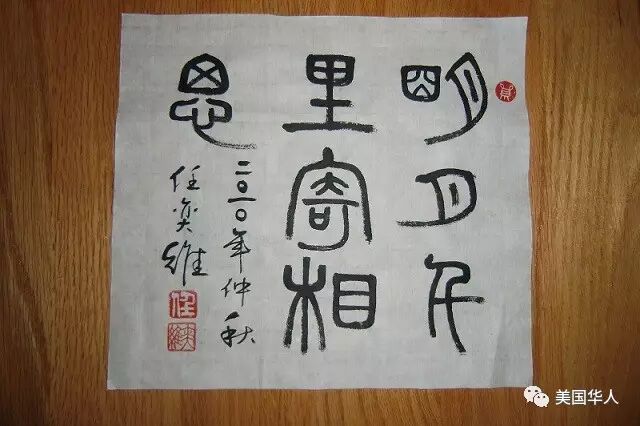 明月千
里寄相
思
二〇一〇年仲秋
任奕维
美国华人